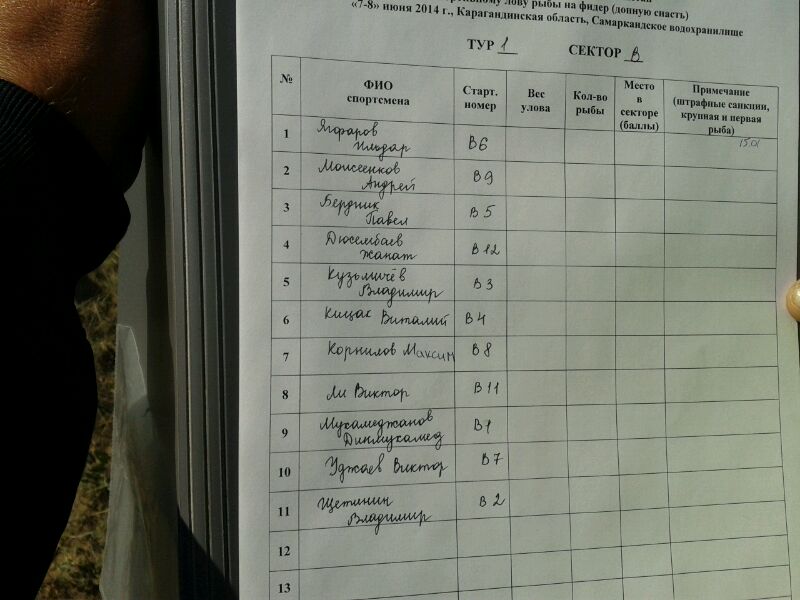 лову рыбы на фидер (донную снасть)
«7-8» июня 2014 г., Карагандинская область, Самаркандское водохранилище
ТУР 1 СЕКТОР В
№ ФИО спортсмена Старт. номер Вес улова Кол-во рыбы Место в секторе (баллы) Примечание (штрафные санкции, крупная и первая рыба)
1 Ягфаров Ильдар В6 15.01
2 Моисеенков Андрей В9
3 Бердник Павел В5
4 Дюсембаев Жанат В12
5 Кузьмичёв Владимир В3
6 Кицак Виталий В4
7 Корнилов Максим В8
8 Ли Виктор В11
9 Мухамеджанов Динмухамед В1
10 Уджаев Виктор В7
11 Щетинин Владимир В2
12
13